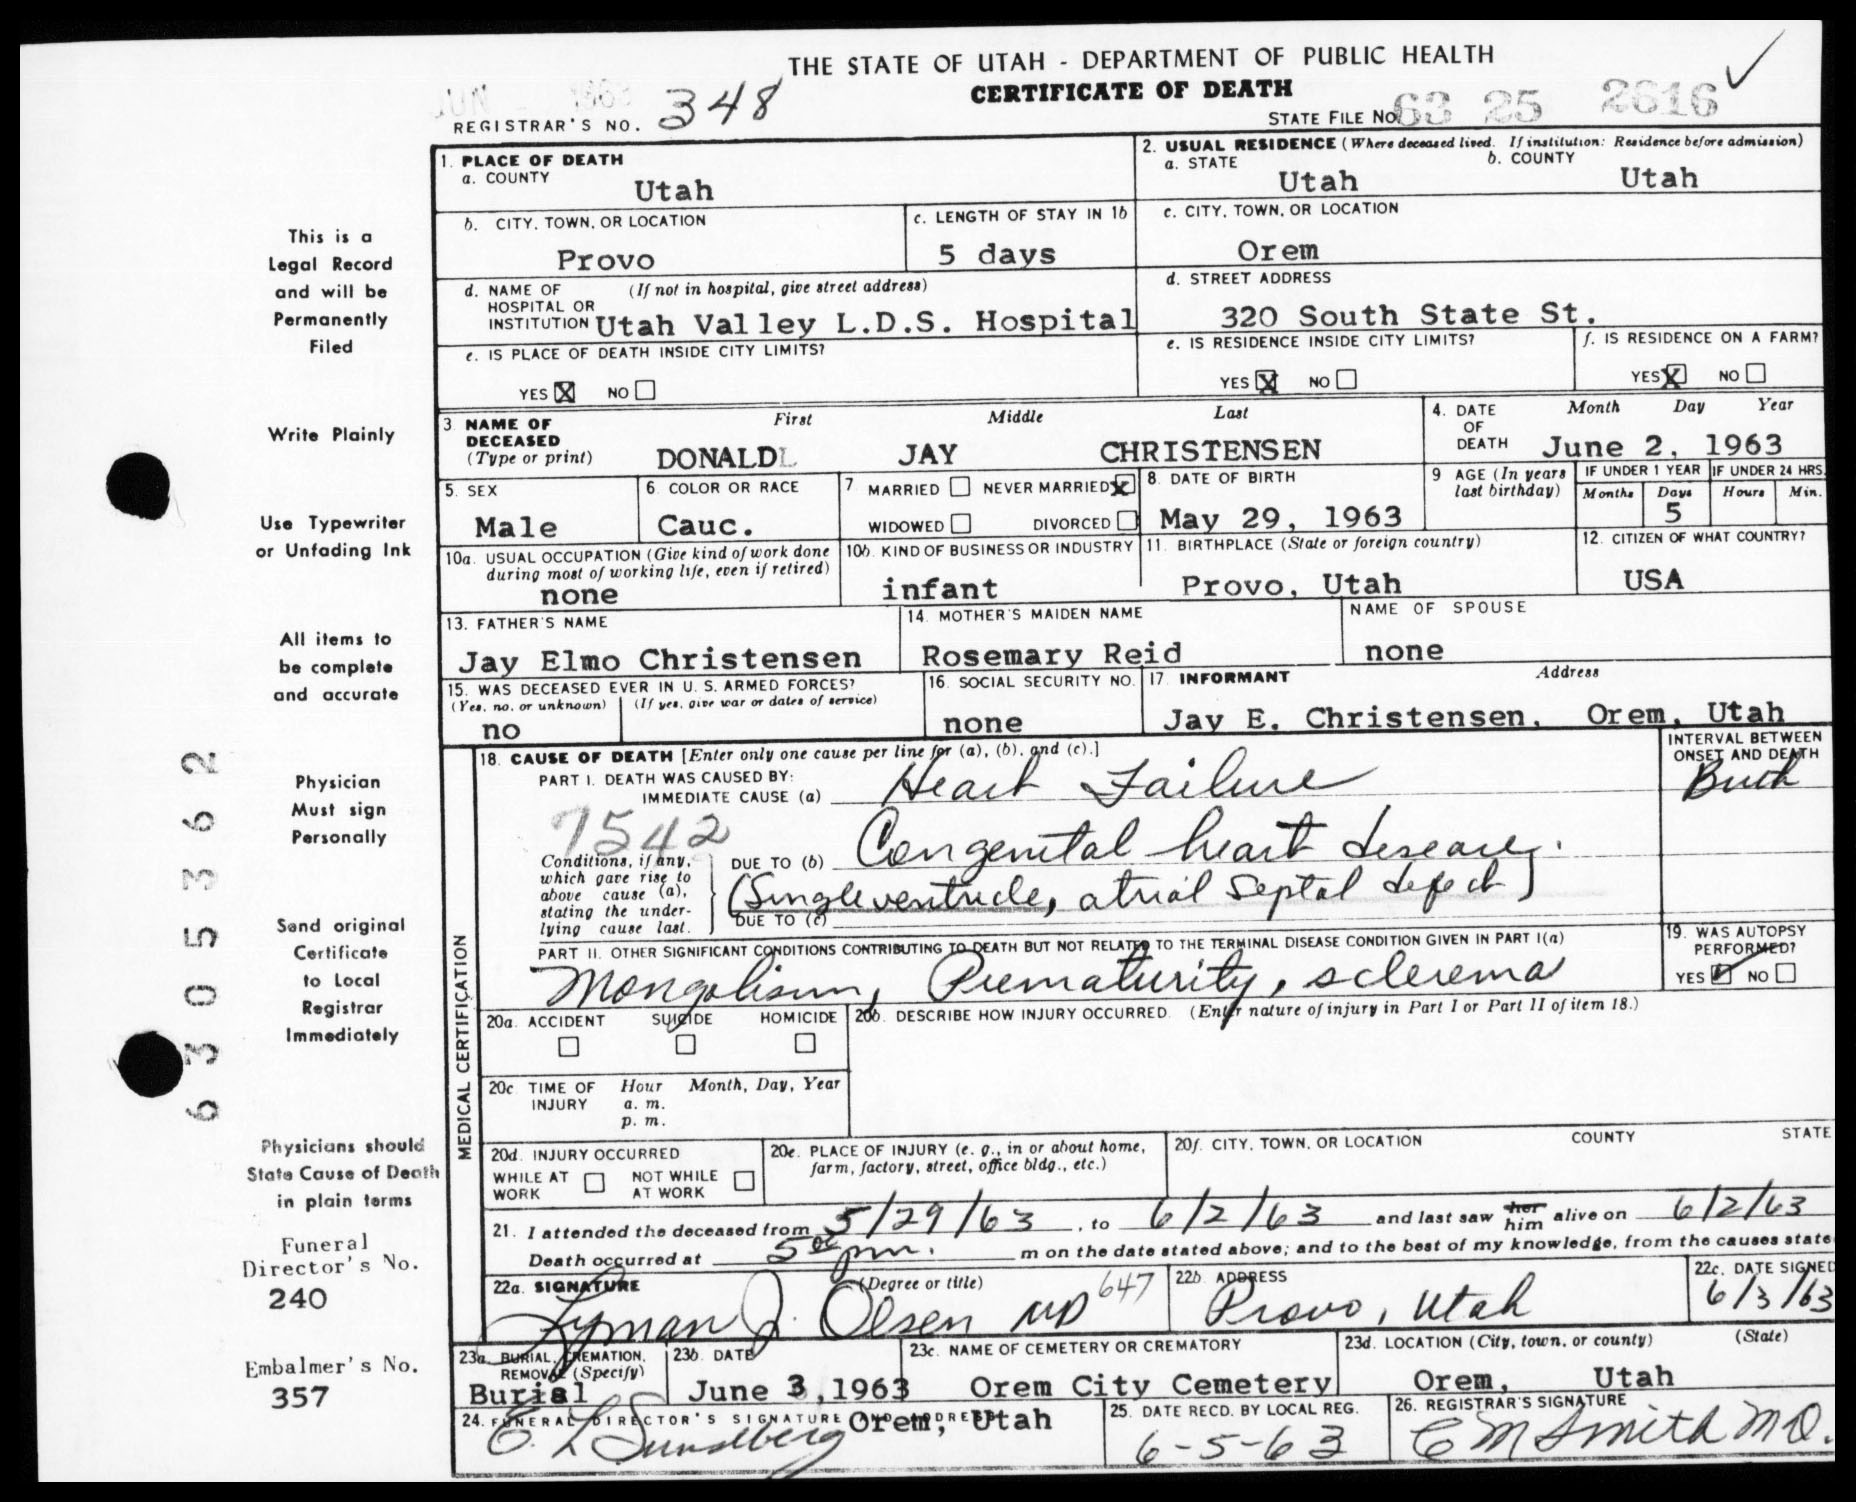 THE STATE OF UTAH - DEPARTMENT OF PUBLIC HEALTH
CERTIFICATE OF DEATH
JUN 1963
REGISTRAR'S NO. 348
STATE FILE NO. 63 25 2616
1. PLACE OF DEATH
a. COUNTY
Utah
2. USUAL RESIDENCE (Where deceased lived. If institution: Residence before admission)
a. STATE b. COUNTY
Utah Utah
b. CITY, TOWN, OR LOCATION
Provo
c. LENGTH OF STAY IN 1b
5 days
c. CITY, TOWN, OR LOCATION
Orem
d. NAME OF (If not in hospital, give street address)
HOSPITAL OR
INSTITUTION Utah Valley L.D.S. Hospital
d. STREET ADDRESS
320 South State St.
e. IS PLACE OF DEATH INSIDE CITY LIMITS?
YES X NO
e. IS RESIDENCE INSIDE CITY LIMITS?
YES X NO
f. IS RESIDENCE ON A FARM?
YES X NO
3. NAME OF DECEASED (Type or print)
First Middle Last
DONALD JAY CHRISTENSEN
4. DATE OF DEATH
Month Day Year
June 2, 1963
5. SEX
Male
6. COLOR OR RACE
Cauc.
7. MARRIED NEVER MARRIED X
WIDOWED DIVORCED
8. DATE OF BIRTH
May 29, 1963
9 AGE (In years last birthday)
IF UNDER 1 YEAR IF UNDER 24 HRS.
Months Days Hours Min.
5
10a. USUAL OCCUPATION (Give kind of work done
during most of working life, even if retired)
none
10b. KIND OF BUSINESS OR INDUSTRY
infant
11. BIRTHPLACE (State or foreign country)
Provo, Utah
12. CITIZEN OF WHAT COUNTRY?
USA
13. FATHER'S NAME
Jay Elmo Christensen
14. MOTHER'S MAIDEN NAME
Rosemary Reid
NAME OF SPOUSE
none
15. WAS DECEASED EVER IN U. S. ARMED FORCES?
(Yes, no, or unknown) (If yes, give war or dates of service)
no
16. SOCIAL SECURITY NO.
none
17. INFORMANT Address
Jay E. Christensen, Orem, Utah
MEDICAL CERTIFICATION
18. CAUSE OF DEATH [Enter only one cause per line for (a), (b), and (c).]
INTERVAL BETWEEN
ONSET AND DEATH
PART I. DEATH WAS CAUSED BY:
IMMEDIATE CAUSE (a) Heart Failure
Birth
7542
Conditions, if any,
which gave rise to
above cause (a),
stating the under-
lying cause last.
DUE TO (b) Congenital heart disease,
(Single ventricle, atrial septal defect)
DUE TO (c)
PART II. OTHER SIGNIFICANT CONDITIONS CONTRIBUTING TO DEATH BUT NOT RELATED TO THE TERMINAL DISEASE CONDITION GIVEN IN PART I(a)
Mongolism, Prematurity, sclerema
19. WAS AUTOPSY
PERFORMED?
YES NO
20a. ACCIDENT SUICIDE HOMICIDE
20b. DESCRIBE HOW INJURY OCCURRED. (Enter nature of injury in Part I or Part II of item 18.)
20c TIME OF INJURY Hour Month, Day, Year
a. m.
p. m.
20d. INJURY OCCURRED
WHILE AT WORK NOT WHILE AT WORK
20e. PLACE OF INJURY (e. g., in or about home,
farm, factory, street, office bldg., etc.)
20f. CITY, TOWN, OR LOCATION COUNTY STATE
21. I attended the deceased from 5/29/63, to 6/2/63 and last saw her him alive on 6/2/63
Death occurred at 5 00 pm. m on the date stated above; and to the best of my knowledge, from the causes state
22a. SIGNATURE (Degree or title)
Lyman J. Olsen MD 647
22b. ADDRESS
Provo, Utah
22c. DATE SIGNED
6/3/63
23a. BURIAL, CREMATION,
REMOVAL (Specify)
Burial
23b. DATE
June 3, 1963
23c. NAME OF CEMETERY OR CREMATORY
Orem City Cemetery
23d. LOCATION (City, town, or county) (State)
Orem, Utah
24. FUNERAL DIRECTOR'S SIGNATURE AND ADDRESS
E. L. Sundberg Orem, Utah
25. DATE RECD. BY LOCAL REG.
6-5-63
26. REGISTRAR'S SIGNATURE
C M Smith M D.
This is a
Legal Record
and will be
Permanently
Filed
Write Plainly
Use Typewriter
or Unfading Ink
All items to
be complete
and accurate
Physician
Must sign
Personally
Send original
Certificate
to Local
Registrar
Immediately
Physicians should
State Cause of Death
in plain terms
Funeral
Director's No.
240
Embalmer's No.
357
63 M 05 M 362